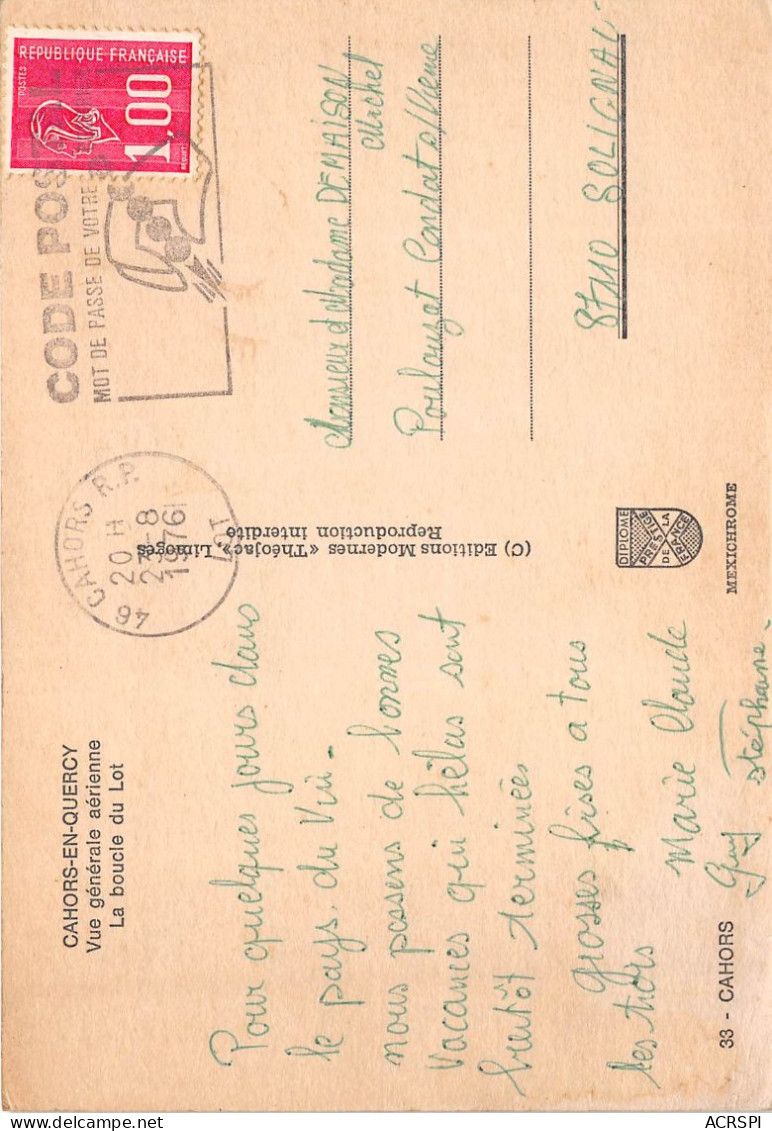 CAHORS-EN-QUERCY
Vue générale aérienne
La boucle du Lot
Pour quelques jours dans
le pays du Vin -
nous passons de bonnes
vacances qui hélas sont
bientôt terminées
grosses bises a tous
les trois
Marie Claude
Guy Stéphane -
33 - CAHORS
(C) Editions Modernes « Théojac », Limoges
Reproduction interdite
46 CAHORS R.P.
20 H
27-8
1976
LOT
CODE POSTAL
MOT DE PASSE DE VOTRE
REPUBLIQUE FRANÇAISE
POSTES
1,00
BEQUET
Monsieur et Madame DEMAISON
Michel
Poulouzat Condat s/Vienne
87110 SOLIGNAC
DIPLOME
PRESTIGE
DE LA
FRANCE
MEXICHROME
ACRSPI